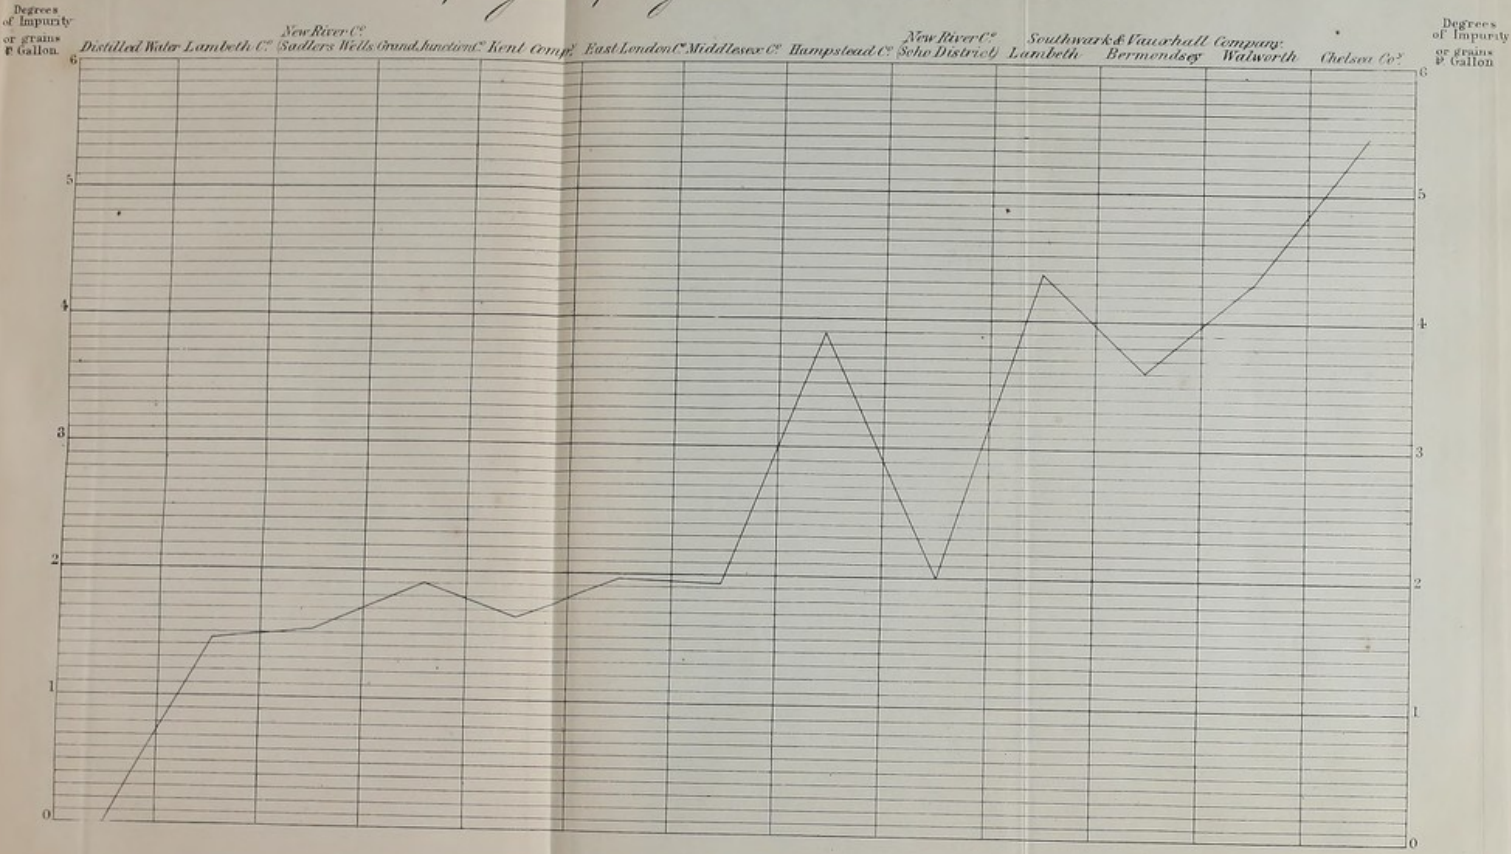 Degrees
of Impurity
or grains
℘ Gallon.
Distilled Water
Lambeth Cº
New River Cº
(Sadlers Wells
Grand Junction Cº
Kent Compy
East London Cº
Middlesex Cº
Hampstead Cº
New River Cº
(Soho District)
Southwark & Vauxhall Company.
Lambeth
Bermondsey
Walworth
Chelsea Coy.
Degrees
of Impurity
or grains
℘ Gallon
6
5
4
3
2
1
0
6
5
4
3
2
1
0